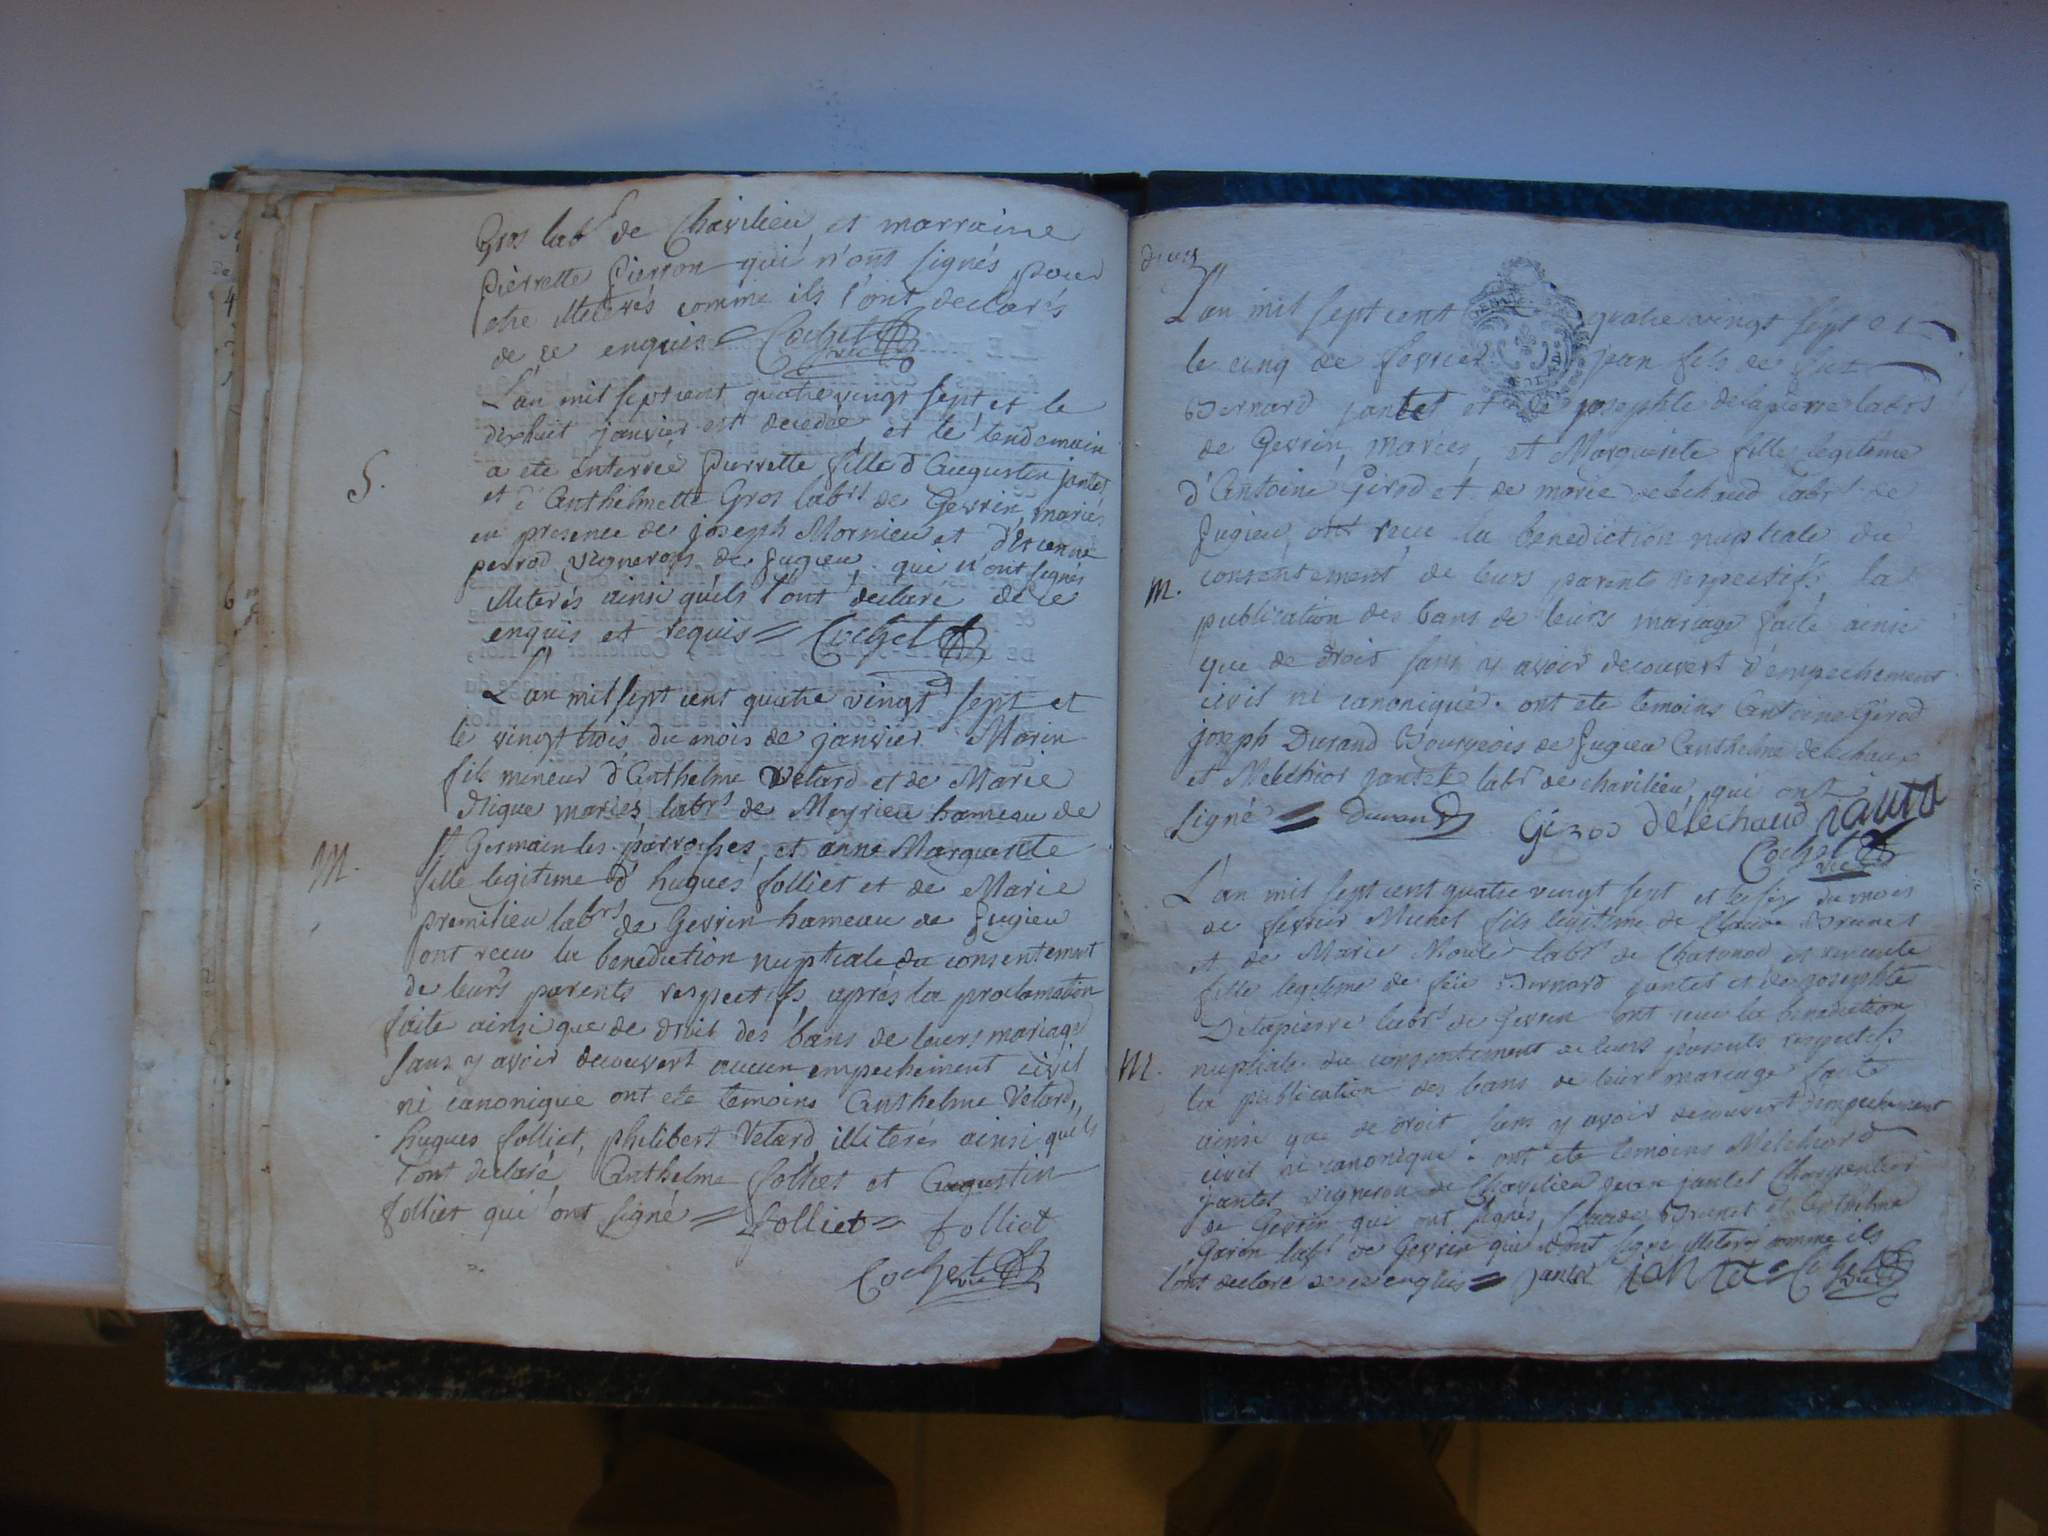 Gros labr de Chavilieu, et marraine
pierrette pierron qui n'ont signés pour
etre illeterés comme ils l'ont declarés
de ce enquis = Cochet vic
L'an mil sept cent quatre vingt sept et le
dixhuit janvier est decedée et le lendemain
S.
a ete enterrée pierrette fille d'augustin jantet
et d'Anthelmette Gros labrs de Gevrin mariés
en presence de joseph Mornieu et d'Etienne
perrod vignerons de fugieu qui n'ont signés
illeterés ainsi quils l'ont declaré de ce
enquis et requis = Cochet
L'an mil sept cent quatre vingt sept et
le vingt trois du mois de janvier Marin
fils mineur d'anthelme Vetard et de Marie
mariés labrs de Meyrieu hameau de
M.
St Germain les parroisses, et anne Marguerite
fille legitime d'hugues folliet et de Marie
premilieu labrs de Gevrin hameau de fugieu
ont recu la benediction nuptiale du consentement
de leurs parents respectifs, après la proclamation
faite ainsi que de droit des bans de leurs mariage
sans y avoir decouvert aucun empechement civil
ni canonique ont ete temoins Anthelme Vetard,
hugues folliet, philibert Vetard, illiterés ainsi quils
l'ont declaré, Anthelme folliet et Augustin
folliet qui ont signé = folliet = folliet
Cochet vic
deux
L'an mil sept cent quatre vingt sept et
le cinq de fevrier jean fils de feu
Bernard jantet et de josephte delapierre labrs
de Gevrin, mariés, et Marguerite fille legitime
d'Antoine Girod et de marie delechaud labrs de
fugieu, ont recu la benediction nuptiale du
M.
consentement de leurs parents respectifs, la
publication des bans de leurs mariage faite ainsi
que de droit sans y avoir decouvert d'empechement
civil ni canonique. ont ete temoins Antoine Girod
joseph Durand Bourgeois de fugieu Anthelme delechaud
et Melchior jantet labr de chavilieu, qui ont
signé = Durand Girod delechaud
Cochet vic
L'an mil sept cent quatre vingt sept et le six du mois
de fevrier Michel fils legitime de Claude Brunet
et de Marie labrs de Chatonod et
fille legitime de feu Bernard jantet et de josephte
Delapierre labrs de Gevrin ont recu la benediction
M.
nuptiale du consentement de leurs parents respectifs
la publication des bans de leur mariage faite
ainsi que de droit sans y avoir decouvert d'empechement
civil ni canonique. ont ete temoins Melchior
jantet vigneron de Chavilieu jean jantet Charpentier
de Gevrin qui ont signés, Claude Brunet et Anthelme
labr de Gevrin qui n'ont signé illeterés comme ils
l'ont declaré de ce enquis = jantet jantet = Cochet vic